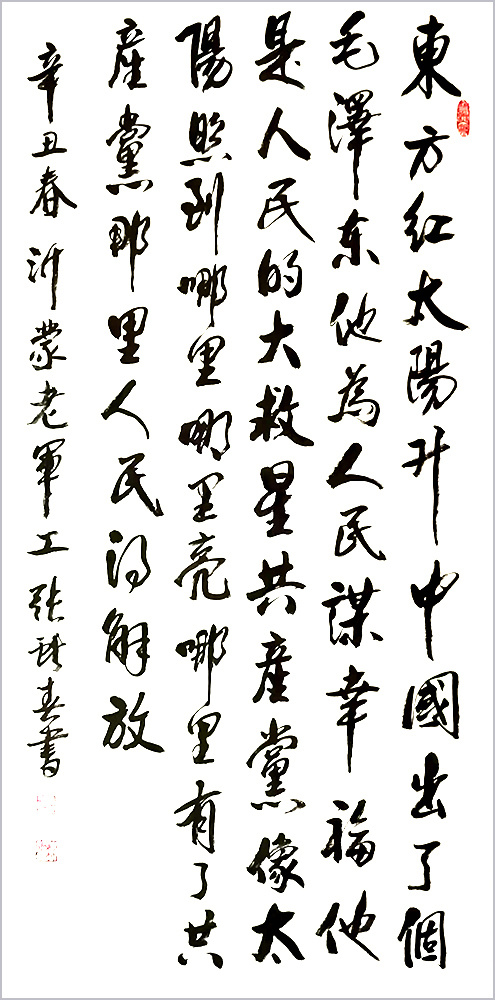 東方红太陽升中國出了個
毛澤东他為人民謀幸福他
是人民的大救星共產黨像太
陽照到哪里哪里亮哪里有了共
產黨那里人民得解放
辛丑春沂蒙老軍工张 春書